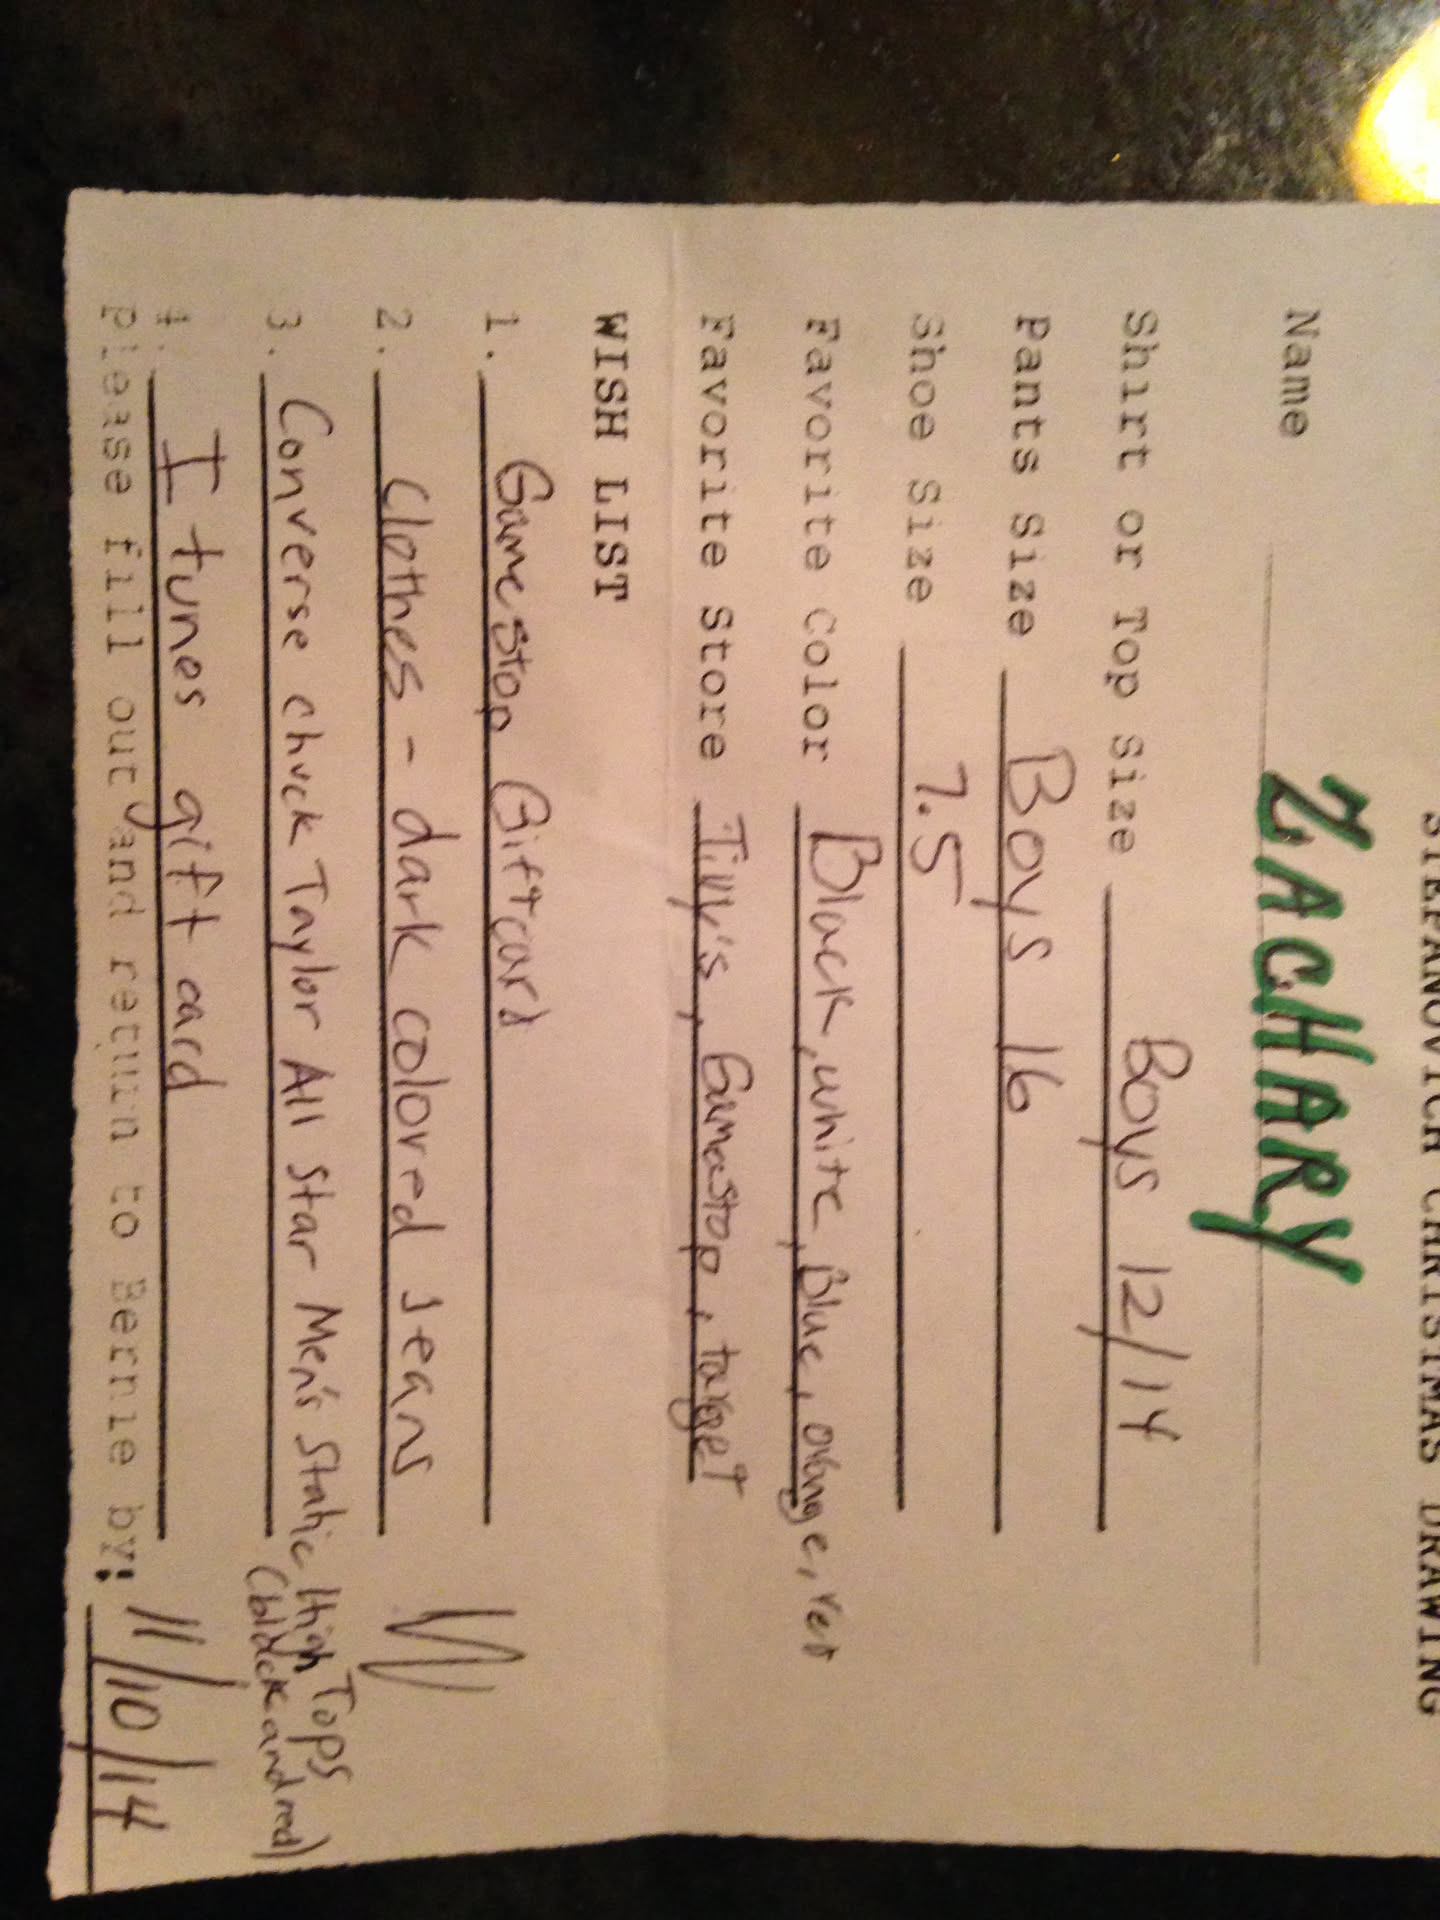 STEFANOVICH CHRISTMAS DRAWING
Name ZACHARY
Shirt or Top Size Boys 12/14
Pants Size Boys 16
Shoe Size 7.5
Favorite Color Black, white, Blue, orange, red
Favorite Store Tilly's, Gamestop, target
WISH LIST
1. Gamestop Giftcard
2. Clothes - dark colored jeans
3. Converse chuck Taylor All Star Men's Static High Tops
(black and red)
4. I tunes gift card
Please fill out and return to Bernie by: 11/10/14